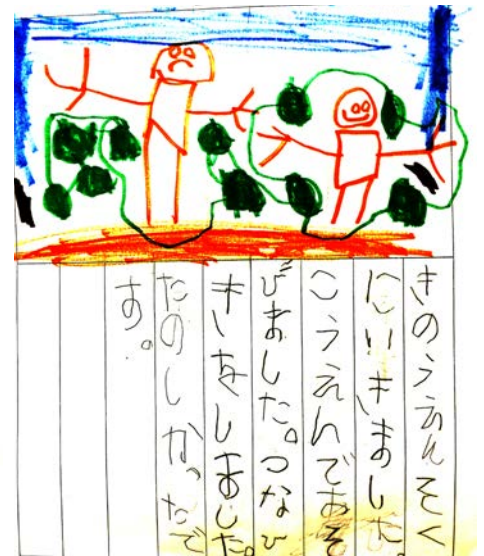 きのうえんそく
にいきました
こうえんであそ
びました。つなひ
きをしました。
たのしかったで
す。